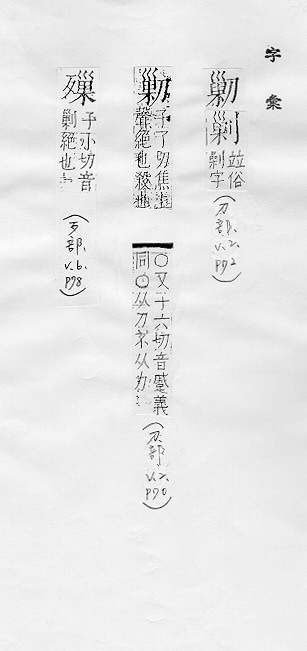 字彙
竝俗
剿字
(刀部.
v.2.
p92)
子了切焦上
聲絕也殺也
○又子六切音蹙義
同○从刀不从力
(刀部
v.2.
p90)
子小切音
剿絕也
(歹部.
v.6.
p98)